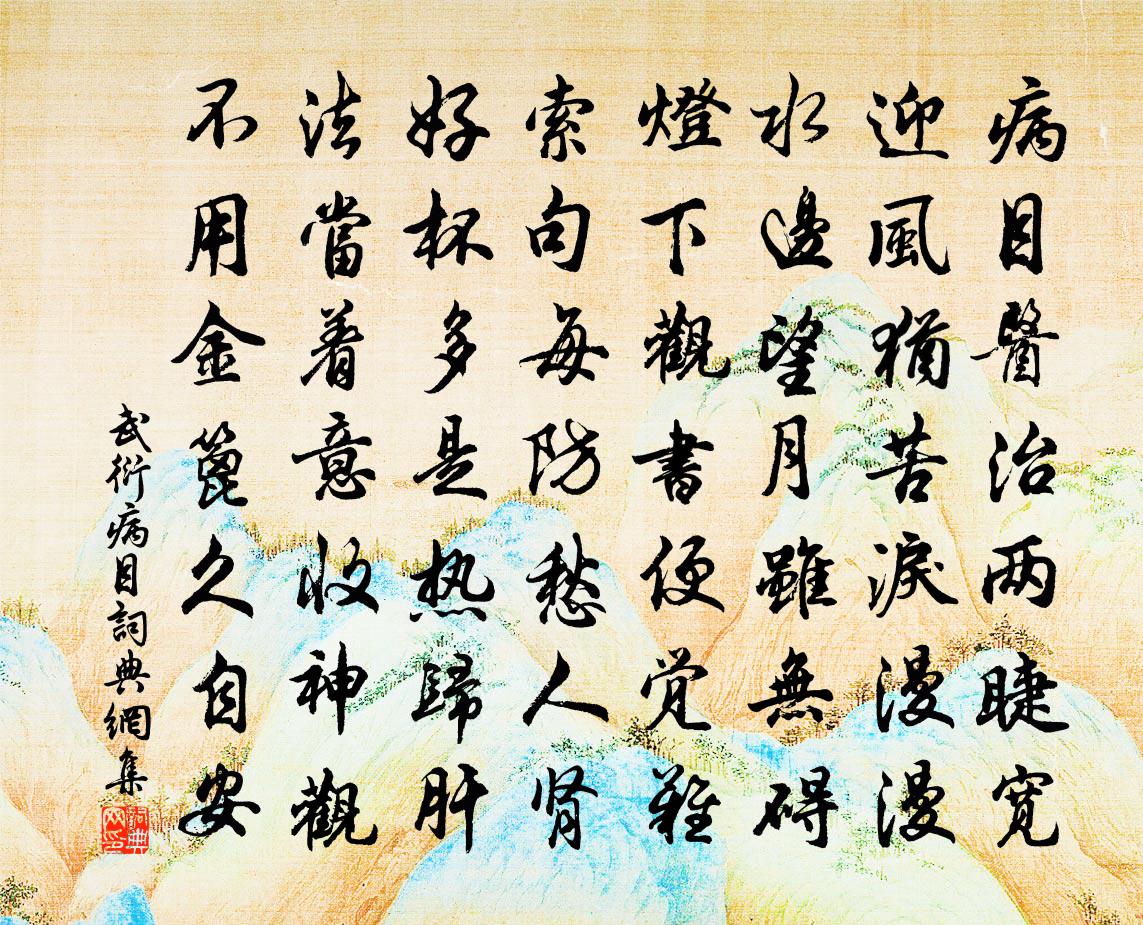 病目醫治两睫寛
迎風猶苦淚漫漫
水邊望月雖無碍
燈下觀書便覚難
索句每防愁人肾
好杯多是热歸肝
法當着意收神觀
不用金篦久自安
武衍病目詞典網集
詞典